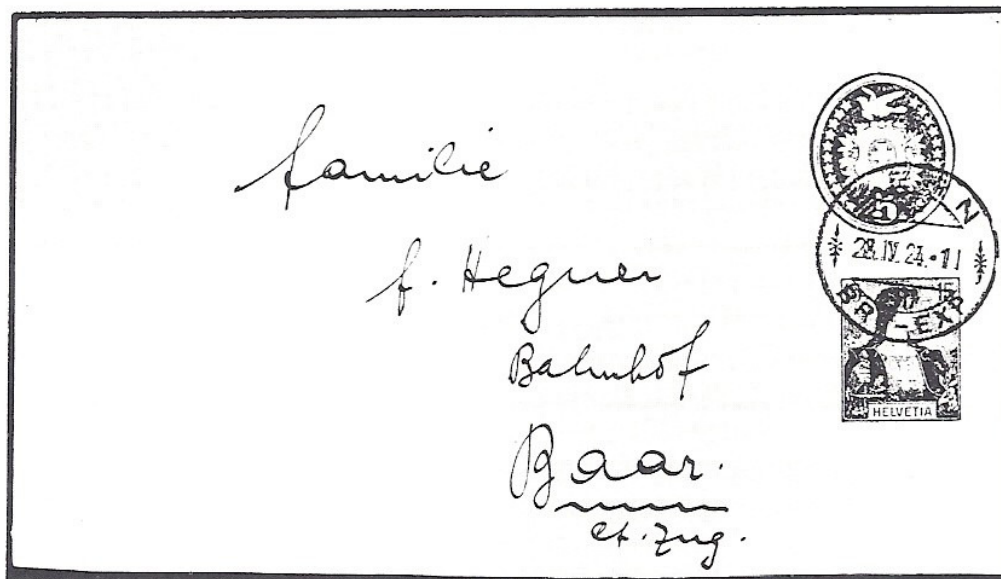 Familie
F. Hegner
Bahnhof
Baar.
Ct. Zug.
5
28.IV.24.-11
BR.-EXP.
15
HELVETIA